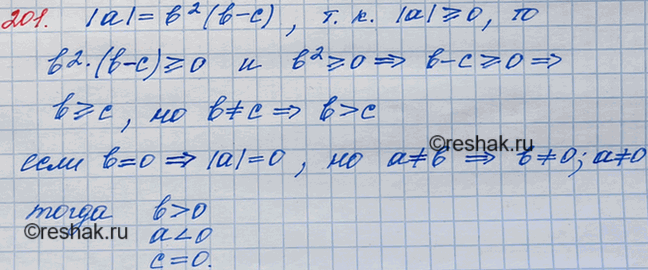 201. |a| = b²(b-c), т. к. |a| ≥ 0, то
b²·(b-c) ≥ 0 и b² ≥ 0 ⟹ b-c ≥ 0 ⟹
b ≥ c, но b ≠ c ⟹ b > c
©reshak.ru
если b=0 ⟹ |a|=0, но a≠b ⟹ b≠0; a≠0
тогда b>0
©reshak.ru
a<0
c=0.